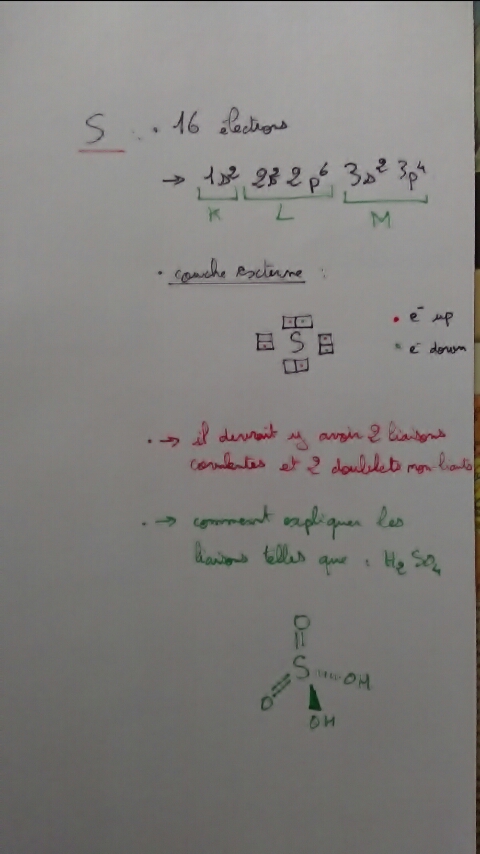 S : • 16 électrons
→ 1s² 2s² 2p⁶ 3s² 3p⁴
K L M
• couche externe :
S
• e⁻ up
• e⁻ down
• → il devrait y avoir 2 liaisons
covalentes et 2 doublets non-liants
• → comment expliquer les
liaisons telles que : H₂SO₄
O
S
OH
O
OH